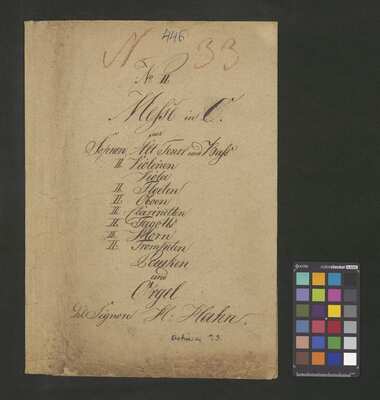 N 446 33
No II.
Messe in C.
aus
Sopran Alt Tenor und Bass
II. Violinen
Viola
II. Floeten
II. Oboen
II. Clarinetten
II. Fagotts
II. Horn
II. Trompeten
Pauken
und
Orgel
Del Signor H: Hahn.